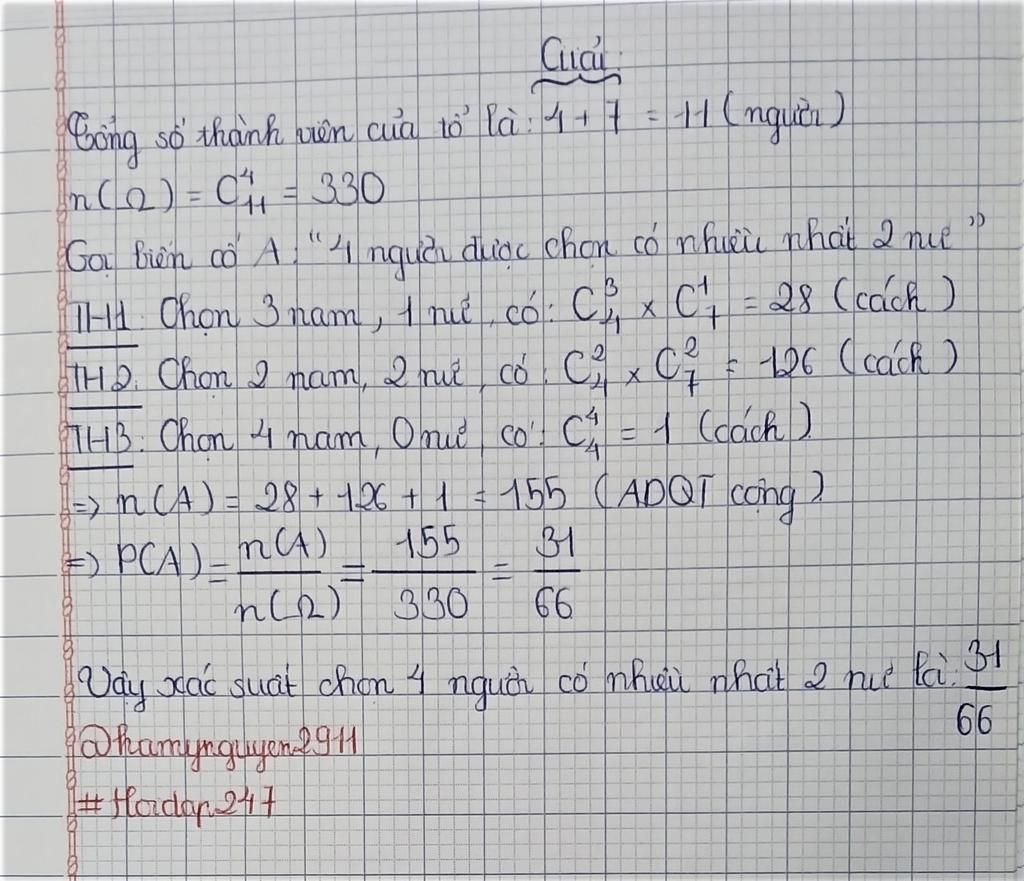 Giải:
Tổng số thành viên của tổ là: 4 + 7 = 11 (người)
n(Ω) = C⁴₁₁ = 330
Gọi biến cố A: "4 người được chọn có nhiều nhất 2 nữ"
TH1: Chọn 3 nam, 1 nữ, có: C³₄ × C¹₇ = 28 (cách)
TH2: Chọn 2 nam, 2 nữ, có: C²₄ × C²₇ = 126 (cách)
TH3: Chọn 4 nam, 0 nữ, có: C⁴₄ = 1 (cách)
=> n(A) = 28 + 126 + 1 = 155 (ADQT cộng)
=> P(A) = n(A)/n(Ω) = 155/330 = 31/66
Vậy xác suất chọn 4 người có nhiều nhất 2 nữ là: 31/66
@hamynguyen2911
#Hoidap247